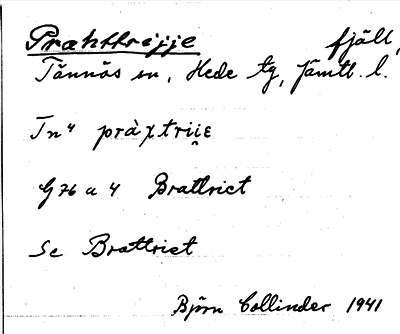 Prahttrijje fjäll,
Tännäs sn, Hede tg, Jämtl. l.
Tn4 pràχtrii̯ε
G 76 a 4 Brattriet
Se Brattriet
Björn Collinder 1941